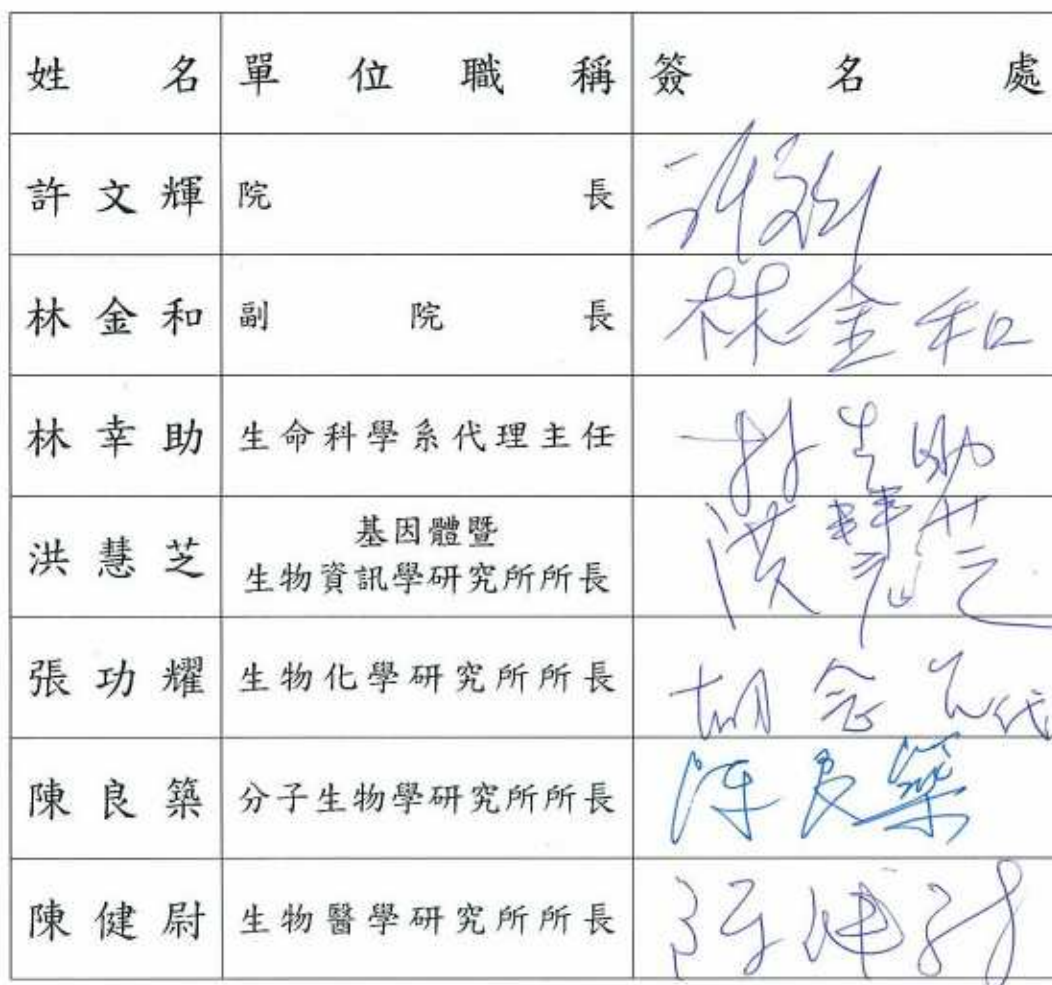 姓名 單位職稱 簽名處
許文輝 院長
林金和 副院長 林金和
林幸助 生命科學系代理主任 林幸助
洪慧芝 基因體暨
生物資訊學研究所所長 洪慧芝
張功耀 生物化學研究所所長
陳良築 分子生物學研究所所長 陳良築
陳健尉 生物醫學研究所所長 陳健尉